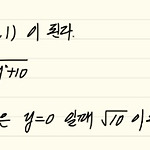 ,1) 이 된다.
+10
은 y=0 일때 √10 이